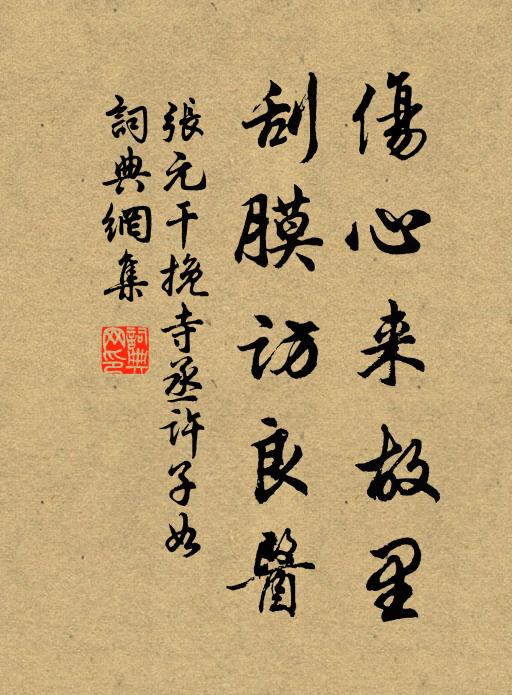 傷心来故里
刮膜访良醫
張元干挽寺丞許子如
詞典網集
詞典網印